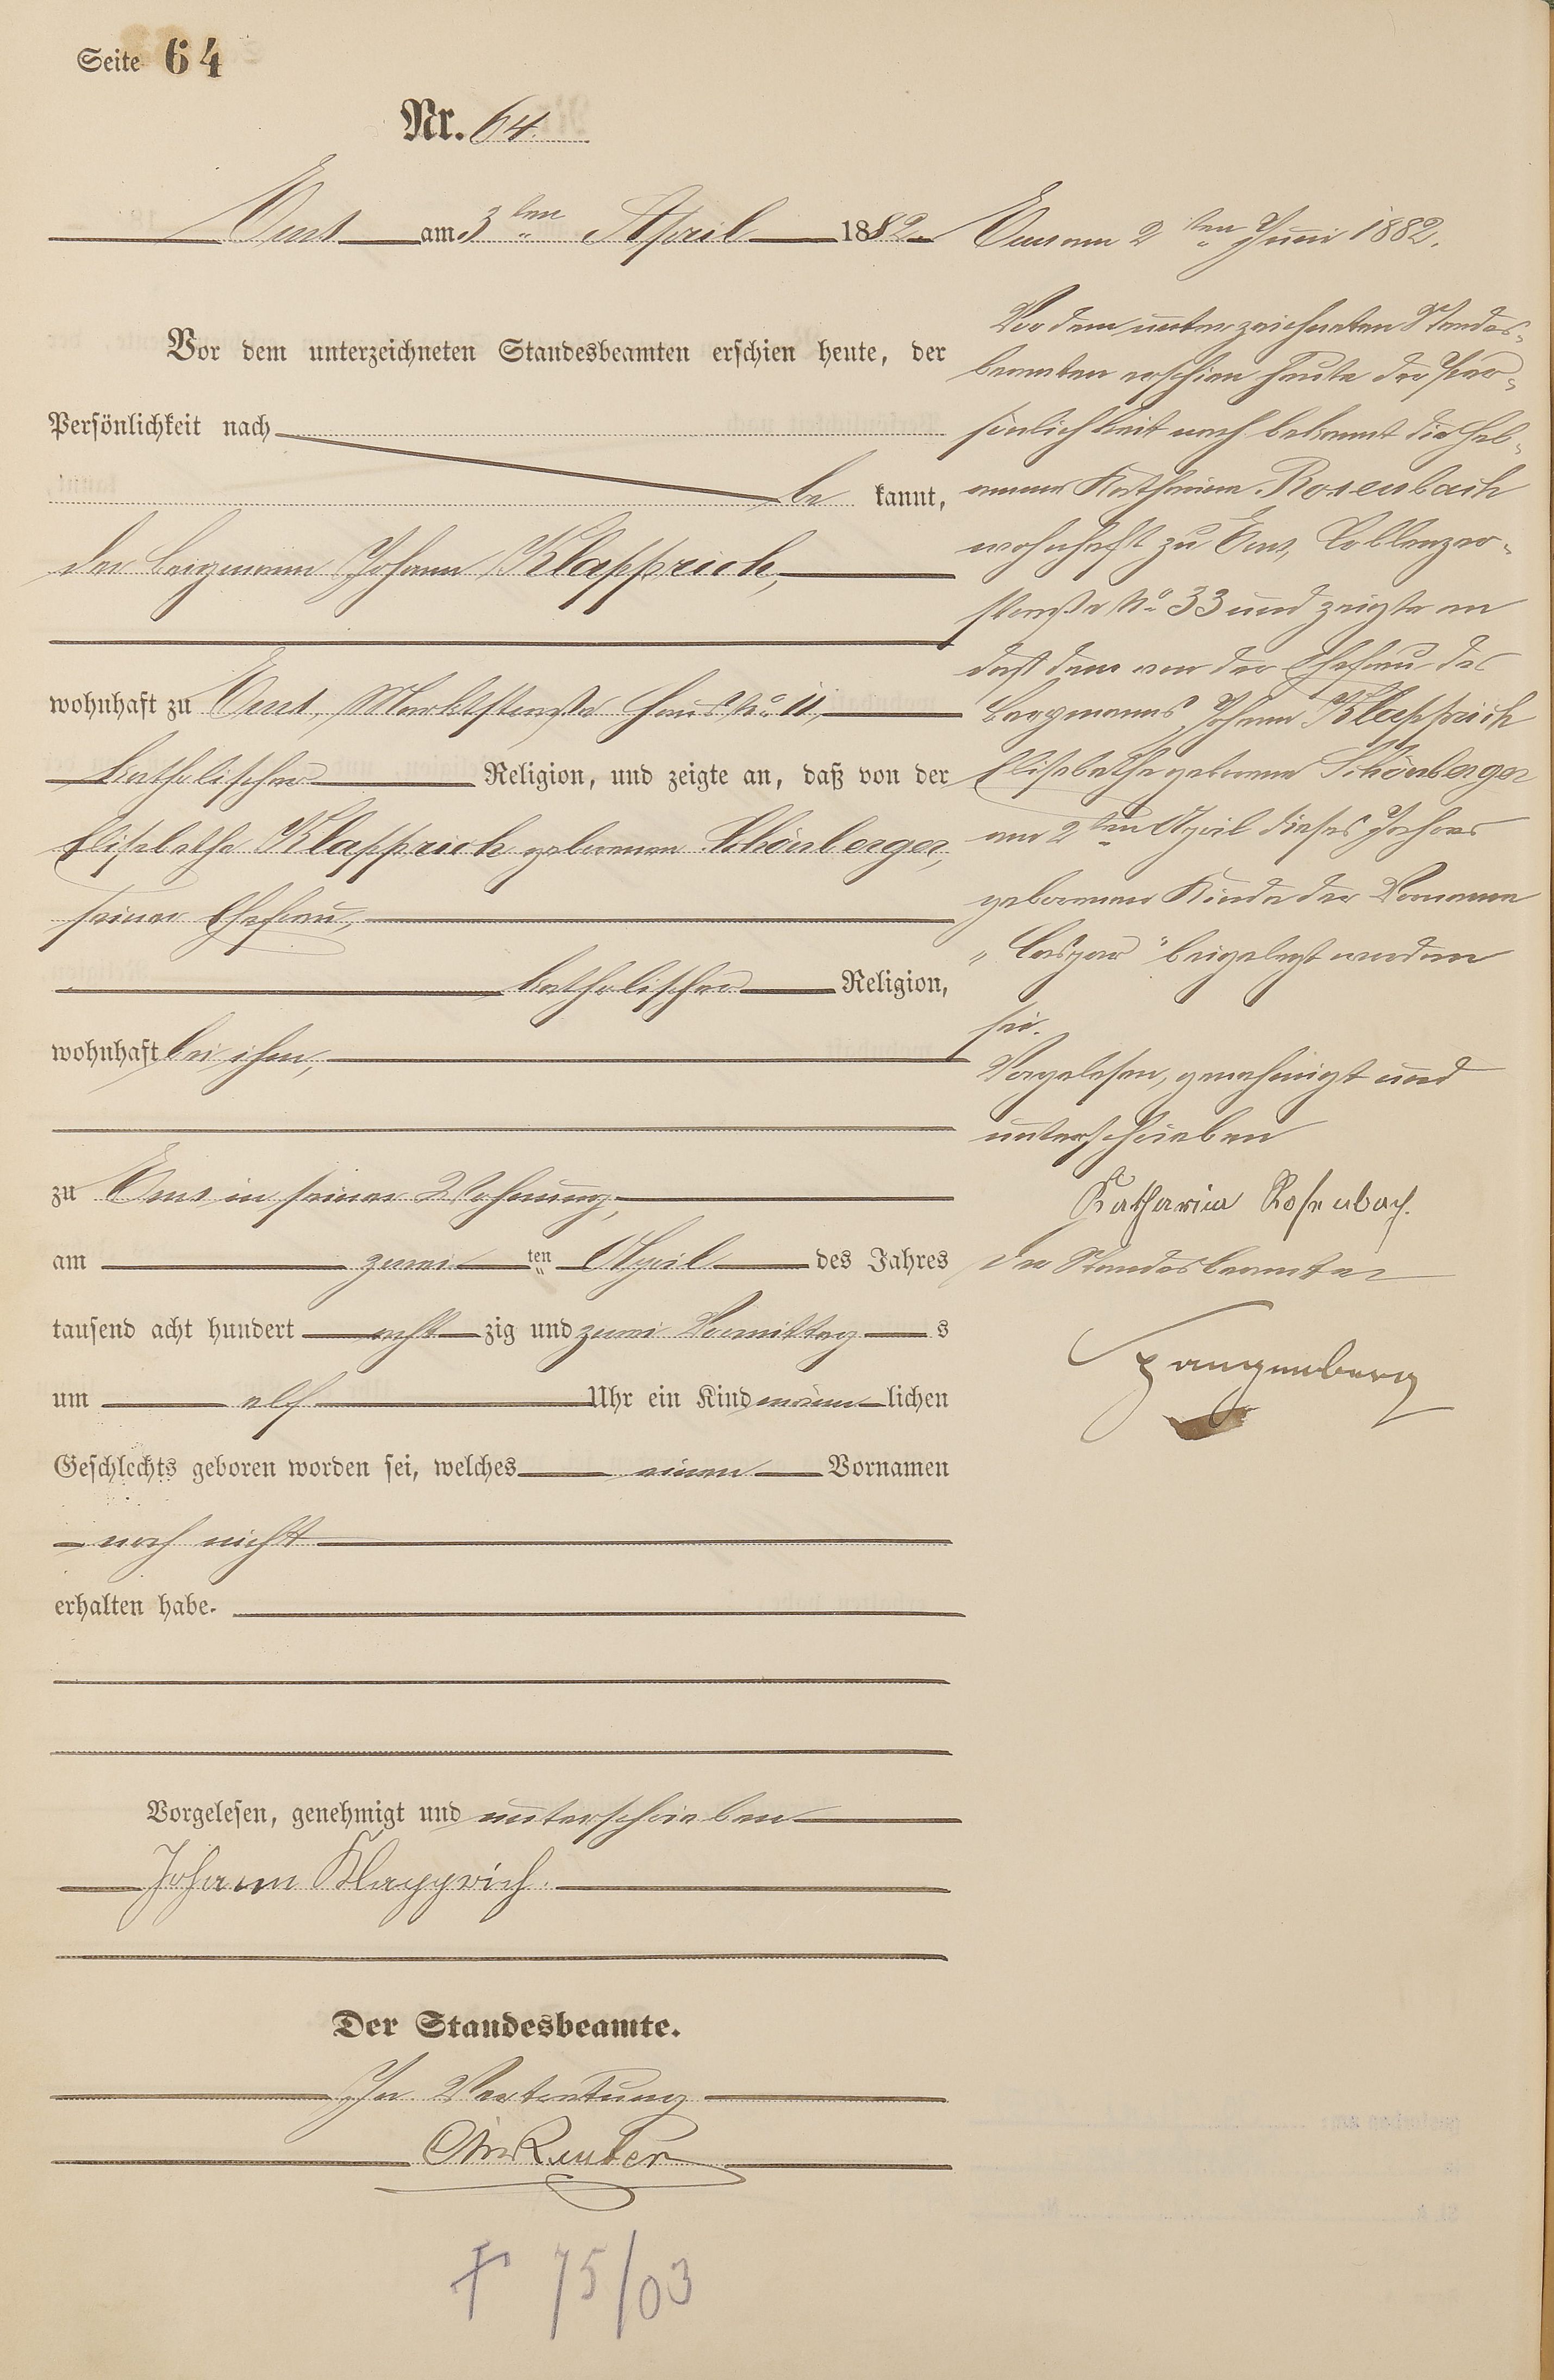 Seite 64
Nr. 64.
Ems am 3ten April 1882.
Vor dem unterzeichneten Standesbeamten erschien heute, der
Persönlichkeit nach
be kannt,
der Bergmann Johann Klapprich,
wohnhaft zu Ems, Marktstraße Haus No. 11,
katholischer Religion, und zeigte an, daß von der
Elisabetha Klapprich geborenen Schönberger,
seiner Ehefrau,
katholischer Religion,
wohnhaft bei ihm,
zu Ems in seiner Wohnung,
am zwei ten April des Jahres
tausend acht hundert acht zig und zwei Vormittag s
um elf Uhr ein Kind männ lichen
Geschlechts geboren worden sei, welches einen Vornamen
noch nicht
erhalten habe.
Vorgelesen, genehmigt und unterschrieben
Johann Klapprich.
Der Standesbeamte.
In Vertretung
Reuter
† 75/03
Ems am 2ten Juni 1882.
Vor dem unterzeichneten Standes-
beamten erschien heute der Per-
sönlichkeit nach bekannt die Heb-
amme Katharina Rosenbach
wohnhaft zu Ems, Coblenzer-
straße No. 33 und zeigte an
daß dem von der Ehefrau des
Bergmanns Johann Klapprich
Elisabetha geborene Schönberger
am 2ten April dieses Jahres
geborenen Kinde der Vorname
„Caspar" beigelegt worden
sei.
Vorgelesen, genehmigt und
unterschrieben
Katharina Rosenbach.
Der Standesbeamte
Spangenberg